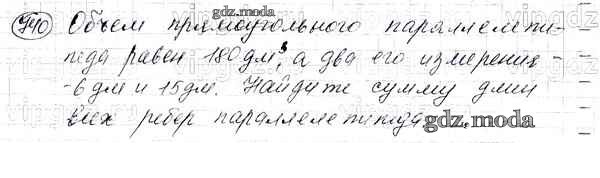 940 Объем прямоугольного параллелепи-
педа равен 180 дм³, а два его измерения -
- 6 дм и 15 дм. Найдите сумму длин
всех ребер параллелепипеда.
gdz.moda
gdz.moda